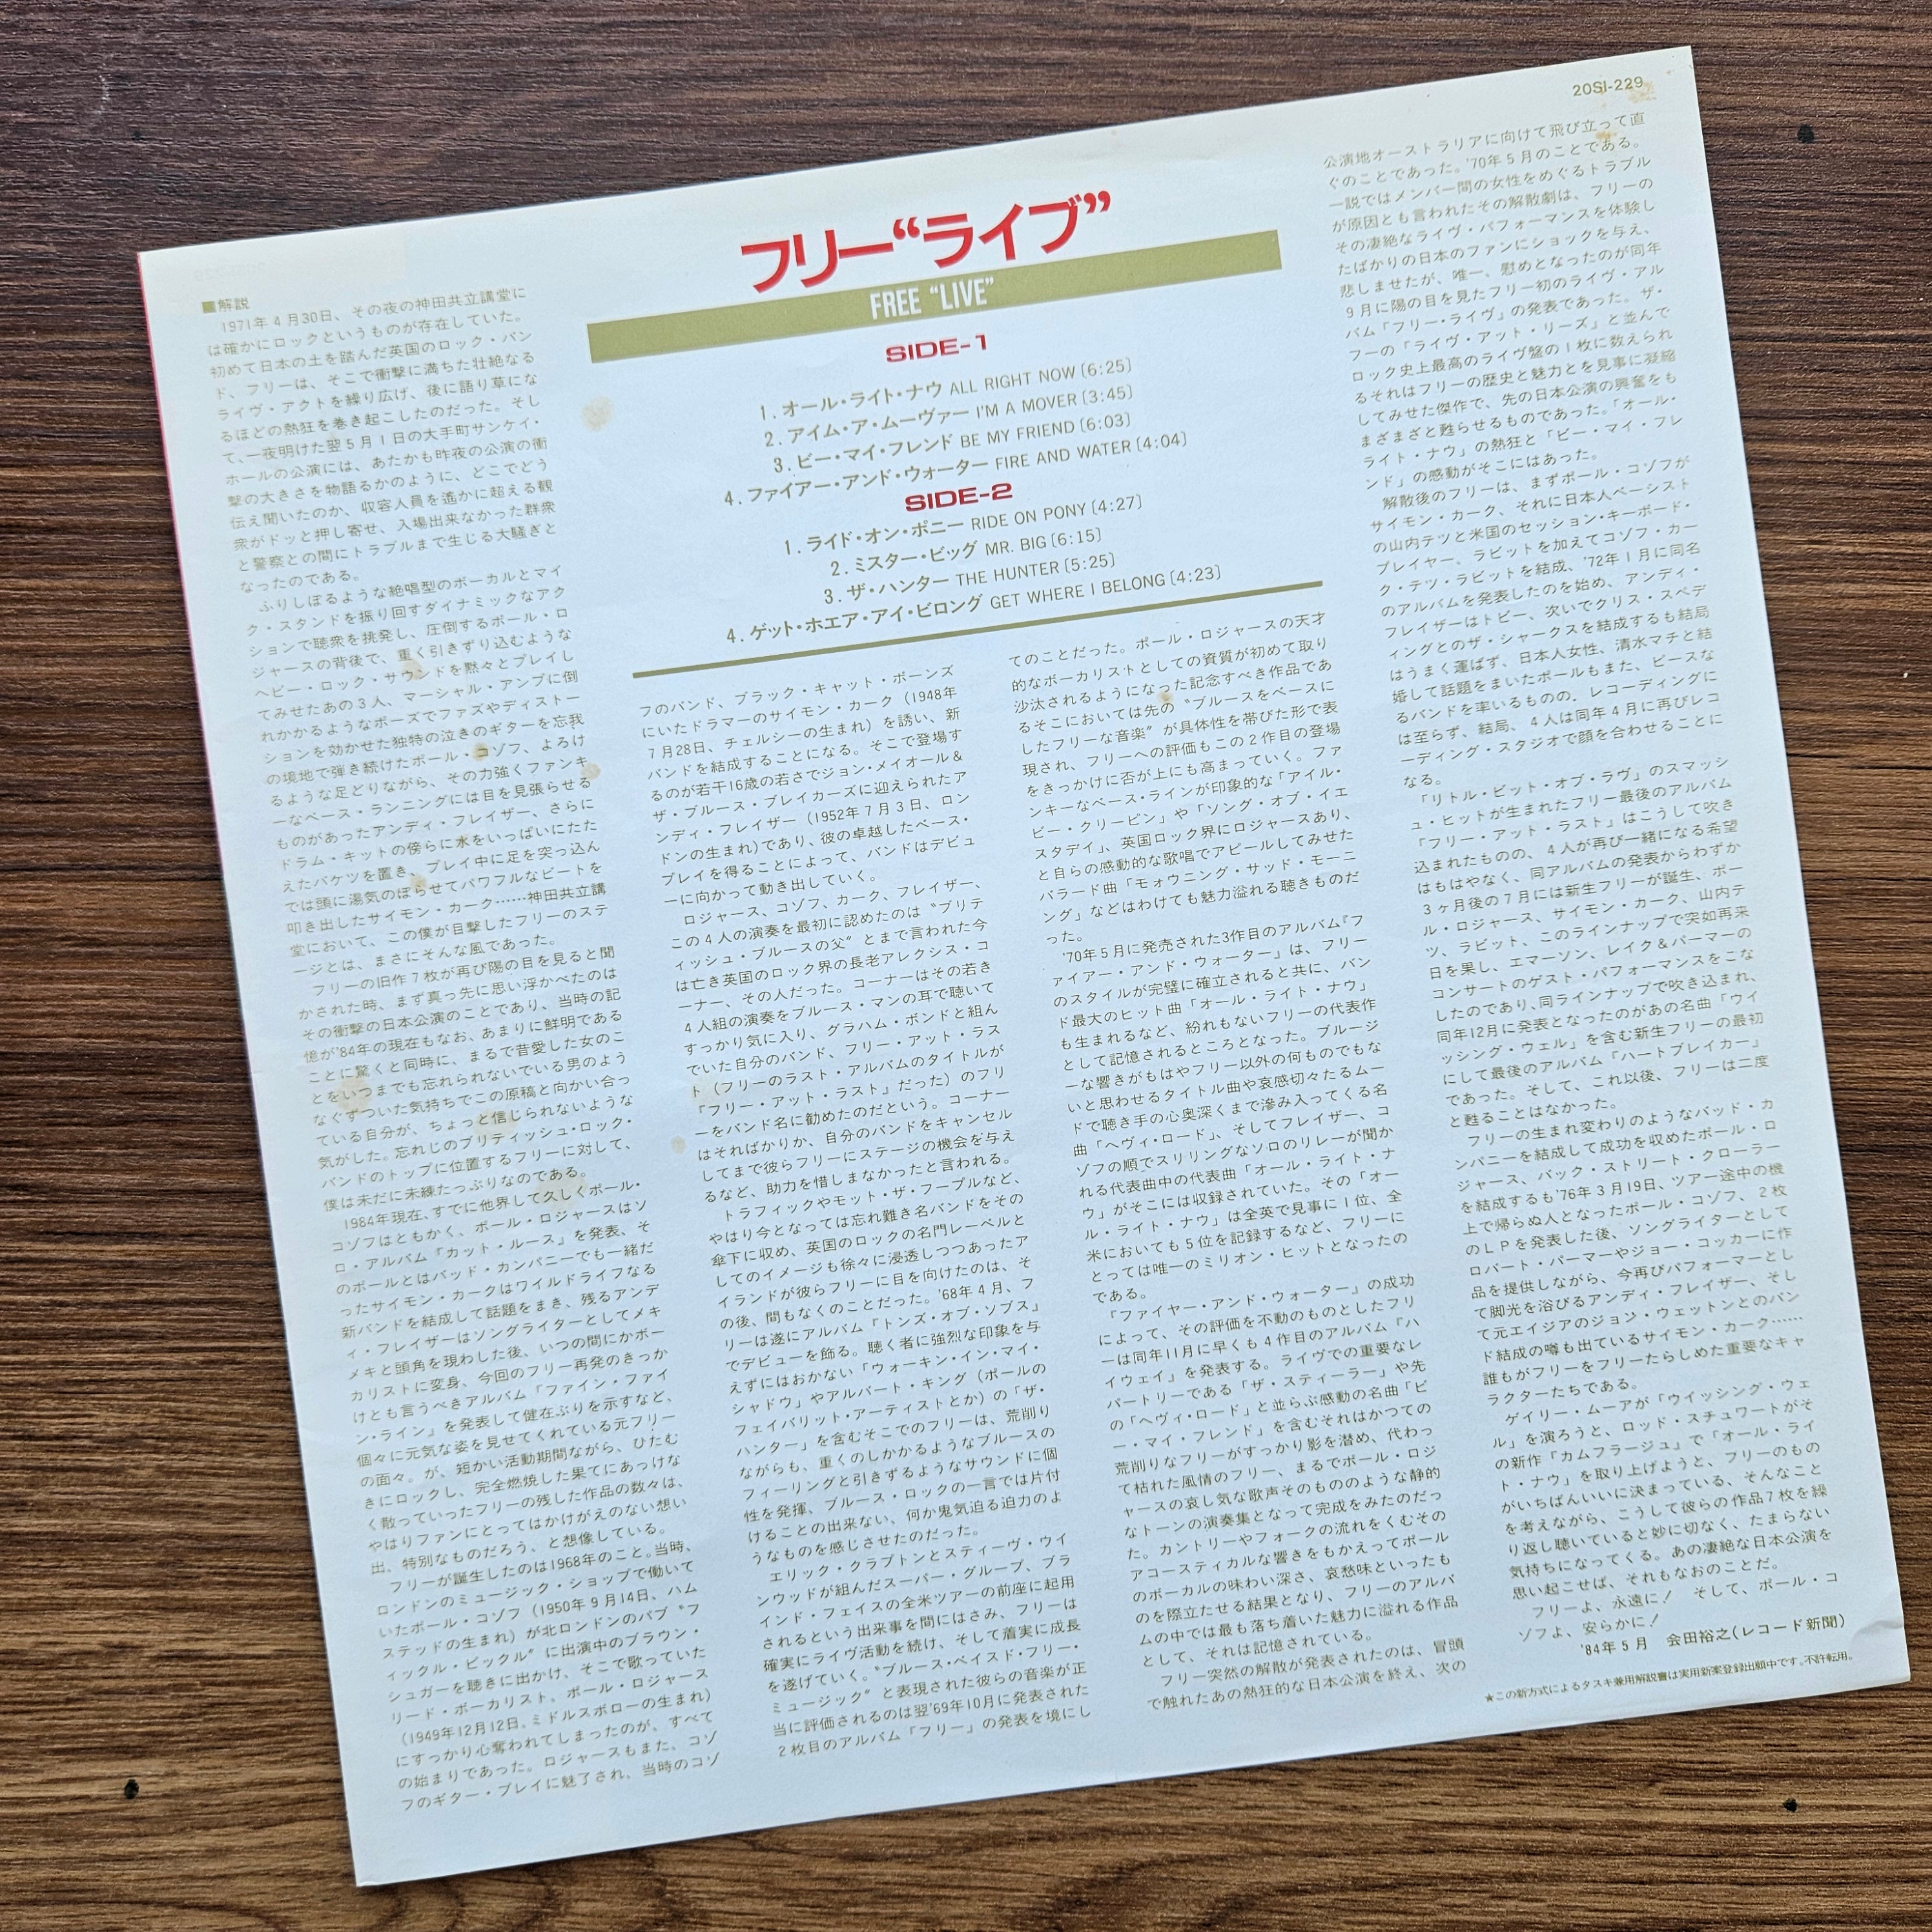 20SI-229
フリー“ライブ”
FREE “LIVE”
SIDE-1
1. オール・ライト・ナウ ALL RIGHT NOW〔6:25〕
2. アイム・ア・ムーヴァー I'M A MOVER〔3:45〕
3. ビー・マイ・フレンド BE MY FRIEND〔6:03〕
4. ファイアー・アンド・ウォーター FIRE AND WATER〔4:04〕
SIDE-2
1. ライド・オン・ポニー RIDE ON PONY〔4:27〕
2. ミスター・ビッグ MR. BIG〔6:15〕
3. ザ・ハンター THE HUNTER〔5:25〕
4. ゲット・ホエア・アイ・ビロング GET WHERE I BELONG〔4:23〕
■解説
1971年4月30日、その夜の神田共立講堂に
は確かにロックというものが存在していた。
初めて日本の土を踏んだ英国のロック・バン
ド、フリーは、そこで衝撃に満ちた壮絶なる
ライヴ・アクトを繰り広げ、後に語り草にな
るほどの熱狂を巻き起こしたのだった。そし
て、一夜明けた翌5月1日の大手町サンケイ・
ホールの公演には、あたかも昨夜の公演の衝
撃の大きさを物語るかのように、どこでどう
伝え聞いたのか、収容人員を遙かに超える観
衆がドッと押し寄せ、入場出来なかった群衆
と警察との間にトラブルまで生じる大騒ぎと
なったのである。
ふりしぼるような絶唱型のボーカルとマイ
ク・スタンドを振り回すダイナミックなアク
ションで聴衆を挑発し、圧倒するポール・ロ
ジャースの背後で、重く引きずり込むような
ヘビー・ロック・サウンドを黙々とプレイし
てみせたあの3人、マーシャル・アンプに倒
れかかるようなポーズでファズやディストー
ションを効かせた独特の泣きのギターを忘我
の境地で弾き続けたポール・コゾフ、よろけ
るような足どりながら、その力強くファンキ
ーなベース・ランニングには目を見張らせる
ものがあったアンディ・フレイザー、さらに
ドラム・キットの傍らに水をいっぱいにたた
えたバケツを置き、プレイ中に足を突っ込ん
では頭に湯気のぼらせてパワフルなビートを
叩き出したサイモン・カーク……神田共立講
堂において、この僕が目撃したフリーのステ
ージとは、まさにそんな風であった。
フリーの旧作7枚が再び陽の目を見ると聞
かされた時、まず真っ先に思い浮かべたのは
その衝撃の日本公演のことであり、当時の記
憶が'84年の現在もなお、あまりに鮮明である
ことに驚くと同時に、まるで昔愛した女のこ
とをいつまでも忘れられないでいる男のよう
なぐずついた気持ちでこの原稿と向かい合っ
ている自分が、ちょっと信じられないような
気がした。忘れじのブリティッシュ・ロック・
バンドのトップに位置するフリーに対して、
僕は未だに未練たっぷりなのである。
1984年現在、すでに他界して久しくポール・
コゾフはともかく、ポール・ロジャースはソ
ロ・アルバム「カット・ルース」を発表、そ
のポールとはバッド・カンパニーでも一緒だ
ったサイモン・カークはワイルドライフなる
新バンドを結成して話題をまき、残るアンデ
ィ・フレイザーはソングライターとしてメキ
メキと頭角を現わした後、いつの間にかボー
カリストに変身、今回のフリー再発のきっか
けとも言うべきアルバム「ファイン・ファイ
ン・ライン」を発表して健在ぶりを示すなど、
個々に元気な姿を見せてくれている元フリー
の面々。が、短かい活動期間ながら、ひたむ
きにロックし、完全燃焼した果てにあっけな
く散っていったフリーの残した作品の数々は、
やはりファンにとってはかけがえのない想い
出、特別なものだろう、と想像している。
フリーが誕生したのは1968年のこと。当時、
ロンドンのミュージック・ショップで働いて
いたポール・コゾフ（1950年9月14日、ハム
ステッドの生まれ）が北ロンドンのパブ〝フ
ィックル・ピックル〟に出演中のブラウン・
シュガーを聴きに出かけ、そこで歌っていた
リード・ボーカリスト、ポール・ロジャース
（1949年12月12日、ミドルスボローの生まれ）
にすっかり心奪われてしまったのが、すべて
の始まりであった。ロジャースもまた、コゾ
フのギター・プレイに魅了され、当時のコゾ
フのバンド、ブラック・キャット・ボーンズ
にいたドラマーのサイモン・カーク（1948年
7月28日、チェルシーの生まれ）を誘い、新
バンドを結成することになる。そこで登場す
るのが若干16歳の若さでジョン・メイオール＆
ザ・ブルース・ブレイカーズに迎えられたア
ンディ・フレイザー（1952年7月3日、ロン
ドンの生まれ）であり、彼の卓越したベース・
プレイを得ることによって、バンドはデビュ
ーに向かって動き出していく。
ロジャース、コゾフ、カーク、フレイザー、
この4人の演奏を最初に認めたのは〝ブリテ
ィッシュ・ブルースの父〟とまで言われた今
は亡き英国のロック界の長老アレクシス・コ
ーナー、その人だった。コーナーはその若き
4人組の演奏をブルース・マンの耳で聴いて
すっかり気に入り、グラハム・ボンドと組ん
でいた自分のバンド、フリー・アット・ラス
ト（フリーのラスト・アルバムのタイトルが
『フリー・アット・ラスト』だった）のフリ
ーをバンド名に勧めたのだという。コーナー
はそればかりか、自分のバンドをキャンセル
してまで彼らフリーにステージの機会を与え
るなど、助力を惜しまなかったと言われる。
トラフィックやモット・ザ・フープルなど、
やはり今となっては忘れ難き名バンドをその
傘下に収め、英国のロックの名門レーベルと
してのイメージも徐々に浸透しつつあったア
イランドが彼らフリーに目を向けたのは、そ
の後、間もなくのことだった。'68年4月、フ
リーは遂にアルバム『トンズ・オブ・ソブス』
でデビューを飾る。聴く者に強烈な印象を与
えずにはおかない「ウォーキン・イン・マイ・
シャドウ」やアルバート・キング（ポールの
フェイバリット・アーティストとか）の「ザ・
ハンター」を含むそこでのフリーは、荒削り
ながらも、重くのしかかるようなブルースの
フィーリングと引きずるようなサウンドに個
性を発揮、ブルース・ロックの一言では片付
けることの出来ない、何か鬼気迫る迫力のよ
うなものを感じさせたのだった。
エリック・クラプトンとスティーヴ・ウイ
ンウッドが組んだスーパー・グループ、ブラ
インド・フェイスの全米ツアーの前座に起用
されるという出来事を間にはさみ、フリーは
確実にライヴ活動を続け、そして着実に成長
を遂げていく。〝ブルース・ベイスド・フリー・
ミュージック〟と表現された彼らの音楽が正
当に評価されるのは翌'69年10月に発表された
2枚目のアルバム「フリー」の発表を境にし
てのことだった。ポール・ロジャースの天才
的なボーカリストとしての資質が初めて取り
沙汰されるようになった記念すべき作品であ
るそこにおいては先の〝ブルースをベースに
したフリーな音楽〟が具体性を帯びた形で表
現され、フリーへの評価もこの2作目の登場
をきっかけに否が上にも高まっていく。ファ
ンキーなベース・ラインが印象的な「アイル・
ビー・クリーピン」や「ソング・オブ・イエ
スタデイ」、英国ロック界にロジャースあり、
と自らの感動的な歌唱でアピールしてみせた
バラード曲「モォウニング・サッド・モーニ
ング」などはわけても魅力溢れる聴きものだ
った。
'70年5月に発売された3作目のアルバム『フ
ァイアー・アンド・ウォーター」は、フリー
のスタイルが完璧に確立されると共に、バン
ド最大のヒット曲「オール・ライト・ナウ」
も生まれるなど、紛れもないフリーの代表作
として記憶されるところとなった。ブルージ
ーな響きがもはやフリー以外の何ものでもな
いと思わせるタイトル曲や哀感切々たるムー
ドで聴き手の心奥深くまで滲み入ってくる名
曲「ヘヴィ・ロード」、そしてフレイザー、コ
ゾフの順でスリリングなソロのリレーが聞か
れる代表曲中の代表曲「オール・ライト・ナ
ウ」がそこには収録されていた。その「オー
ル・ライト・ナウ」は全英で見事に1位、全
米においても5位を記録するなど、フリーに
とっては唯一のミリオン・ヒットとなったの
である。
『ファイヤー・アンド・ウォーター』の成功
によって、その評価を不動のものとしたフリ
ーは同年11月に早くも4作目のアルバム『ハ
イウェイ』を発表する。ライヴでの重要なレ
パートリーである「ザ・スティーラー」や先
の「ヘヴィ・ロード」と並らぶ感動の名曲「ビ
ー・マイ・フレンド」を含むそれはかつての
荒削りなフリーがすっかり影を潜め、代わっ
て枯れた風情のフリー、まるでポール・ロジ
ャースの哀し気な歌声そのもののような静的
なトーンの演奏集となって完成をみたのだっ
た。カントリーやフォークの流れをくむその
アコースティカルな響きをもかえってポール
のボーカルの味わい深さ、哀愁味といったも
のを際立たせる結果となり、フリーのアルバ
ムの中では最も落ち着いた魅力に溢れる作品
として、それは記憶されている。
フリー突然の解散が発表されたのは、冒頭
で触れたあの熱狂的な日本公演を終え、次の
公演地オーストラリアに向けて飛び立って直
ぐのことであった。'70年5月のことである。
一説ではメンバー間の女性をめぐるトラブル
が原因とも言われたその解散劇は、フリーの
その凄絶なライヴ・パフォーマンスを体験し
たばかりの日本のファンにショックを与え、
悲しませたが、唯一、慰めとなったのが同年
9月に陽の目を見たフリー初のライヴ・アル
バム「フリー・ライヴ」の発表であった。ザ・
フーの「ライヴ・アット・リーズ」と並んで
ロック史上最高のライヴ盤の1枚に数えられ
るそれはフリーの歴史と魅力とを見事に凝縮
してみせた傑作で、先の日本公演の興奮をも
まざまざと甦らせるものであった。「オール・
ライト・ナウ」の熱狂と「ビー・マイ・フレ
ンド」の感動がそこにはあった。
解散後のフリーは、まずポール・コゾフが
サイモン・カーク、それに日本人ベーシスト
の山内テツと米国のセッション・キーボード・
プレイヤー、ラビットを加えてコゾフ・カー
ク・テツ・ラビットを結成、'72年1月に同名
のアルバムを発表したのを始め、アンディ・
フレイザーはトビー、次いでクリス・スペデ
ィングとのザ・シャークスを結成するも結局
はうまく運ばず、日本人女性、清水マチと結
婚して話題をまいたポールもまた、ピースな
るバンドを率いるものの、レコーディングに
は至らず、結局、4人は同年4月に再びレコ
ーディング・スタジオで顔を合わせることに
なる。
「リトル・ビット・オブ・ラヴ」のスマッシ
ュ・ヒットが生まれたフリー最後のアルバム
「フリー・アット・ラスト」はこうして吹き
込まれたものの、4人が再び一緒になる希望
はもはやなく、同アルバムの発表からわずか
3ヶ月後の7月には新生フリーが誕生、ポー
ル・ロジャース、サイモン・カーク、山内テ
ツ、ラビット、このラインナップで突如再来
日を果し、エマーソン、レイク＆パーマーの
コンサートのゲスト・パフォーマンスをこな
したのであり、同ラインナップで吹き込まれ、
同年12月に発表となったのがあの名曲「ウイ
ッシング・ウェル」を含む新生フリーの最初
にして最後のアルバム「ハートブレイカー」
であった。そして、これ以後、フリーは二度
と甦ることはなかった。
フリーの生まれ変わりのようなバッド・カ
ンパニーを結成して成功を収めたポール・ロ
ジャース、バック・ストリート・クローラー
を結成するも'76年3月19日、ツアー途中の機
上で帰らぬ人となったポール・コゾフ、2枚
のLPを発表した後、ソングライターとして
ロバート・パーマーやジョー・コッカーに作
品を提供しながら、今再びパフォーマーとし
て脚光を浴びるアンディ・フレイザー、そし
て元エイジアのジョン・ウェットンとのバン
ド結成の噂も出ているサイモン・カーク……
誰もがフリーをフリーたらしめた重要なキャ
ラクターたちである。
ゲイリー・ムーアが「ウイッシング・ウェ
ル」を演ろうと、ロッド・スチュワートがそ
の新作「カムフラージュ」で「オール・ライ
ト・ナウ」を取り上げようと、フリーのもの
がいちばんいいに決まっている、そんなこと
を考えながら、こうして彼らの作品7枚を繰
り返し聴いていると妙に切なく、たまらない
気持ちになってくる。あの凄絶な日本公演を
思い起こせば、それもなおのことだ。
フリーよ、永遠に！　そして、ポール・コ
ゾフよ、安らかに！
'84年5月　会田裕之（レコード新聞）
★この新方式によるタスキ兼用解説書は実用新案登録出願中です。不許転用。